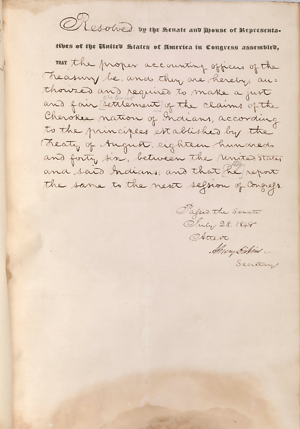 Resolved by the Senate and House of Representa-
tives of the United States of America in Congress assembled,
THAT the proper accounting officers of the
Treasury be, and they are hereby, au-
thorized and required to make a just
and fair settlement of the claims of the
Cherokee nation of Indians, according
to the principles established by the
Treaty of August, eighteen hundred
and forty six, between the United States
and said Indians; and that he report
the same to the next session of Congress.
Passed the Senate
July 28, 1848
Attest
Secretary